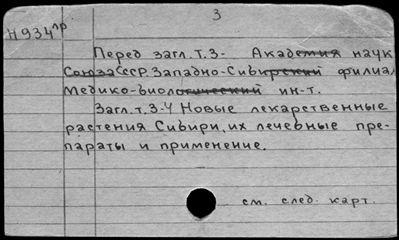 3
Н934пр.
Перед загл. т. 3- Академия наук
Союза ССР. Западно-Сибирский филиал
Медико-биологический ин-т.
Загл. т. 3-4 Новые лекарственные
растения Сибири, их лечебные пре-
параты и применение.
см. след. карт.